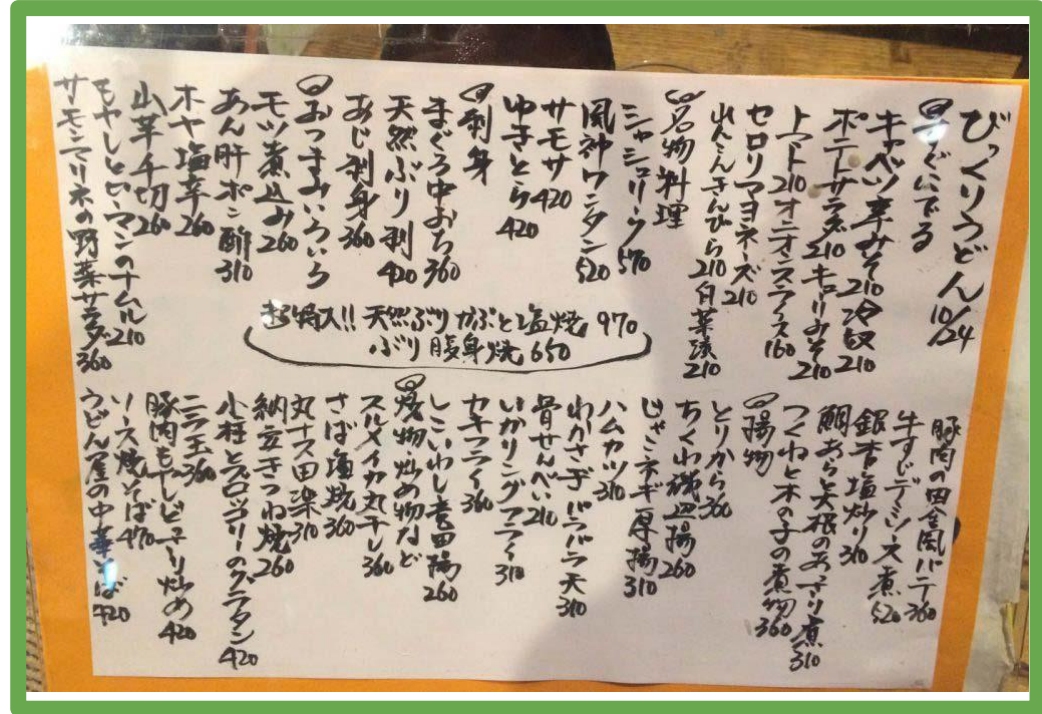 びっくりうどん 10/24
◎すぐにでる
キャベツ辛みそ210 冷奴210
ポテトサラダ210 キューリみそ210
トマト210 オニオンスライス160
セロリマヨネーズ210
れんこんきんぴら210 白菜漬210
◎名物料理
シャシューリク570
風神ワンタン520
サモサ420
ゆきとら420
◎刺身
まぐろ中おち360
天然ぶり刺420
あじ刺身360
◎おつまみいろいろ
モツ煮込み260
あん肝ポン酢310
ホヤ塩辛260
山芋千切260
もやしとピーマンのナムル210
サーモンマリネの野菜サラダ360
超特大!! 天然ぶりかぶと塩焼 970
ぶり腹身焼 650
豚肉の田舎風パテ360
牛すじデミソース煮520
銀杏塩炒り310
鯛あらと大根のあっさり煮310
つくねと木の子の煮物360
◎揚物
とりから360
ちくわ磯辺揚260
じゃこネギ厚揚310
ハムカツ310
わかさぎバラバラ天310
骨せんべい210
いかリングフライ310
カキフライ360
しこいわし竜田揚260
◎焼物・炒め物など
スルメイカ丸干し360
さば塩焼360
丸ナス田楽310
納豆きつね焼260
小柱とブロッコリーのグラタン420
ニラ玉360
豚肉もやしピリ辛炒め420
ソース焼そば470
うどん屋の中華そば420